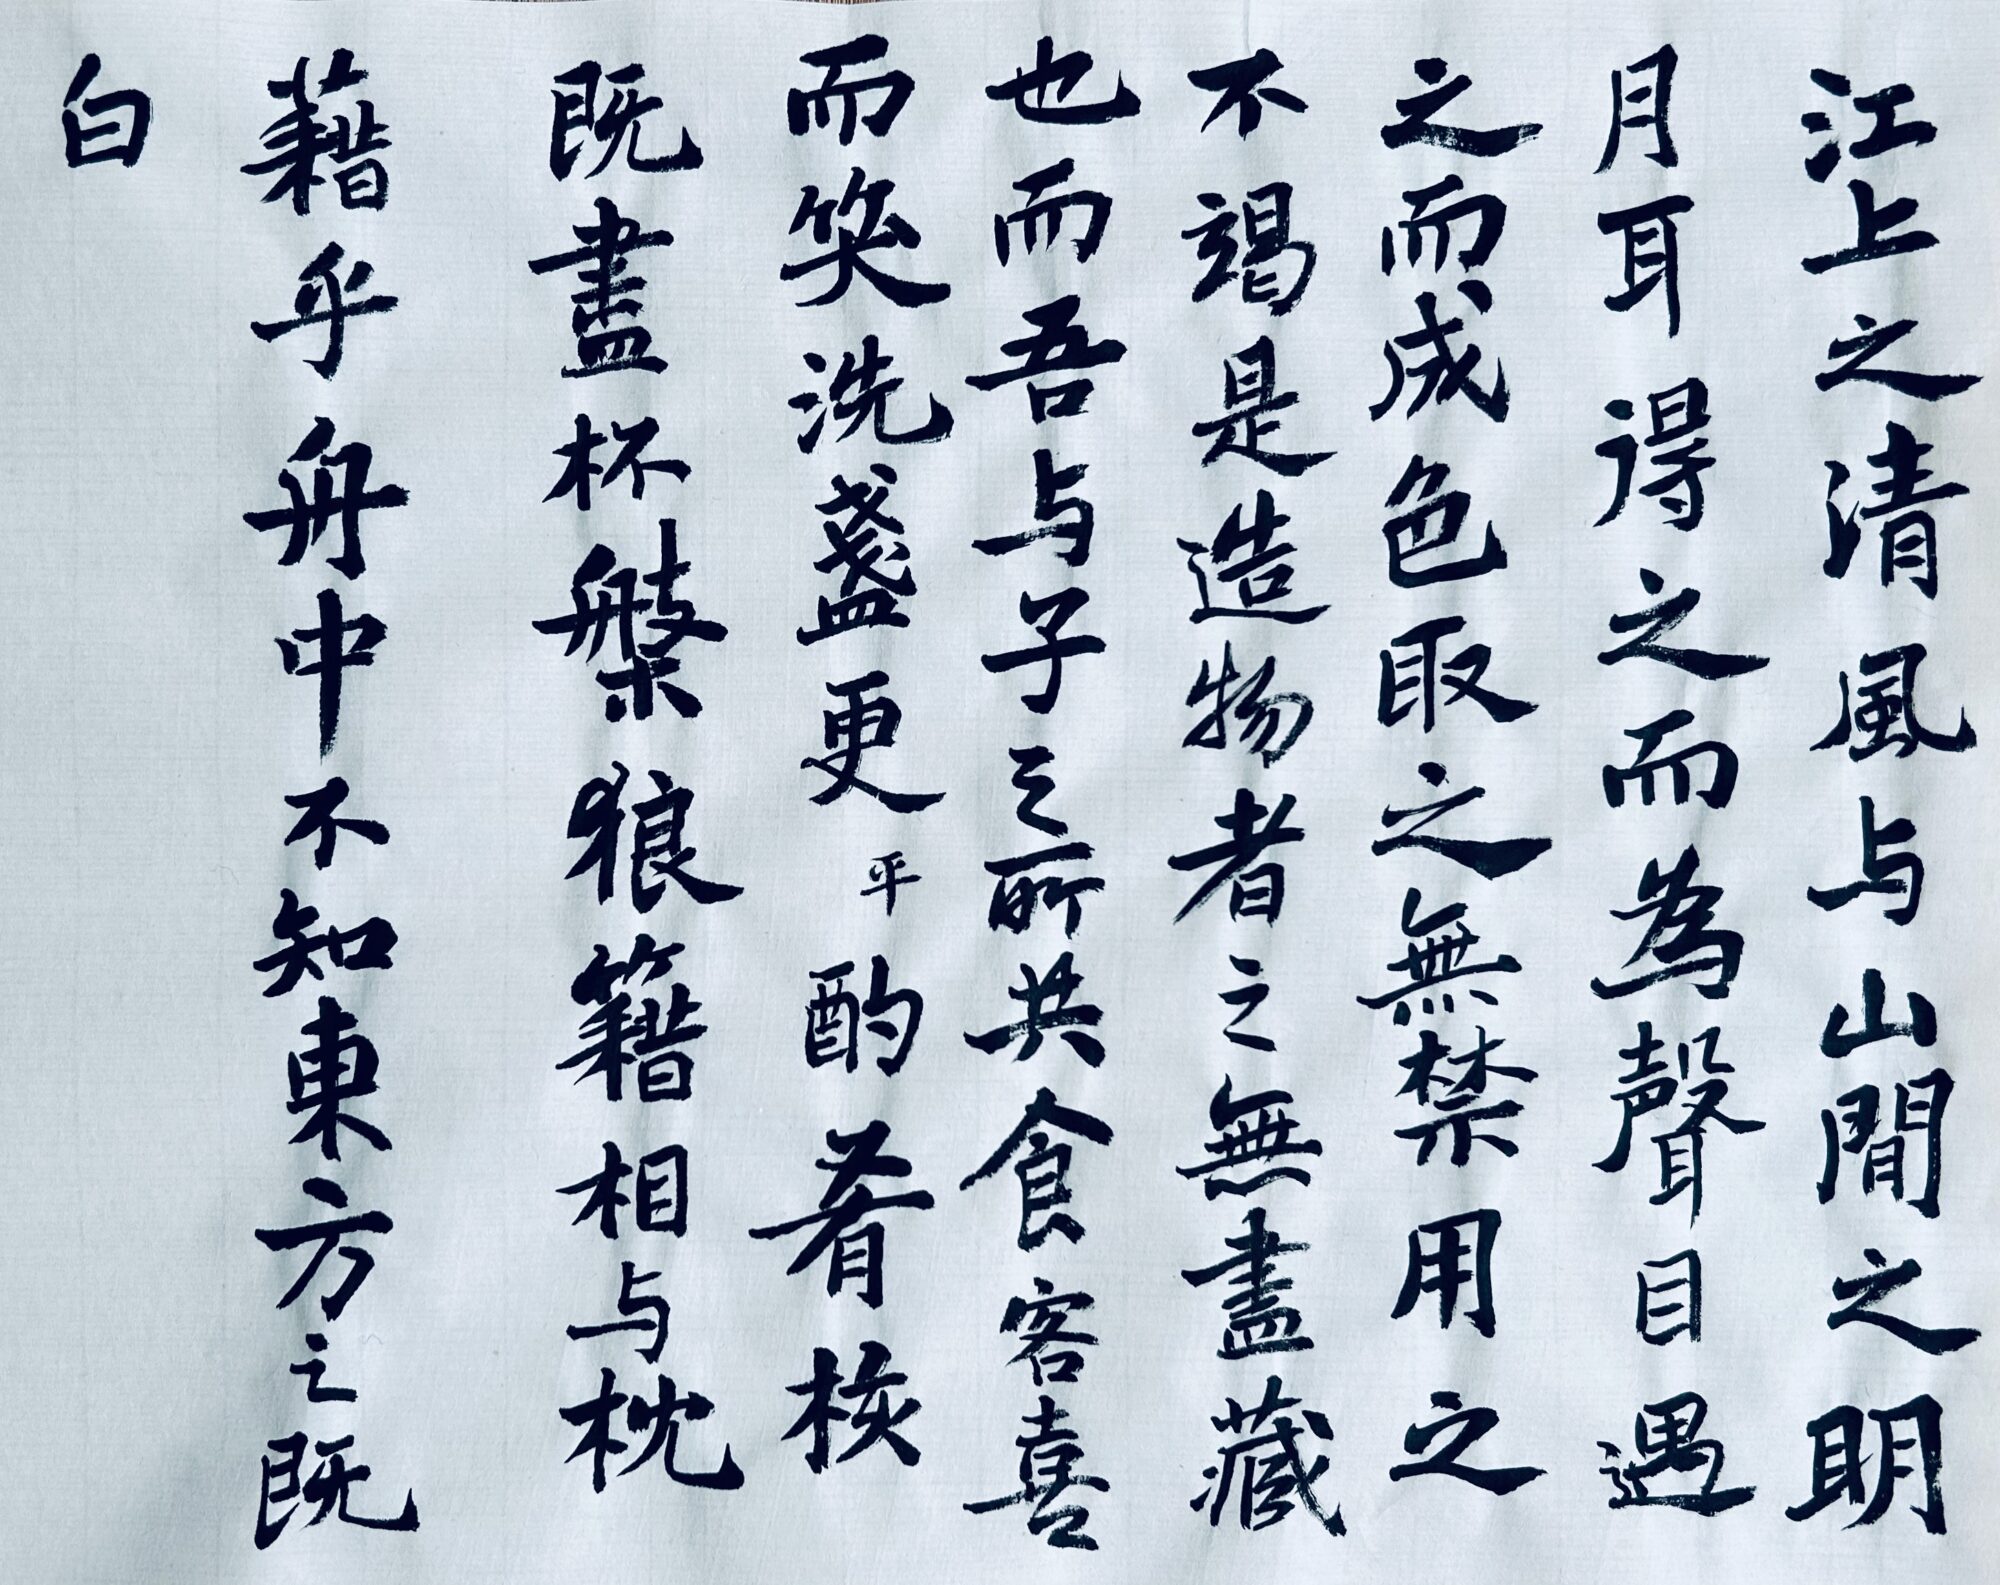 江上之清風与山間之明
月耳得之而為聲目遇
之而成色取之無禁用之
不竭是造物者之無盡藏
也而吾与子之所共食客喜
而笑洗盞更平酌肴核
既盡杯槃狼籍相与枕
藉乎舟中不知東方之既
白